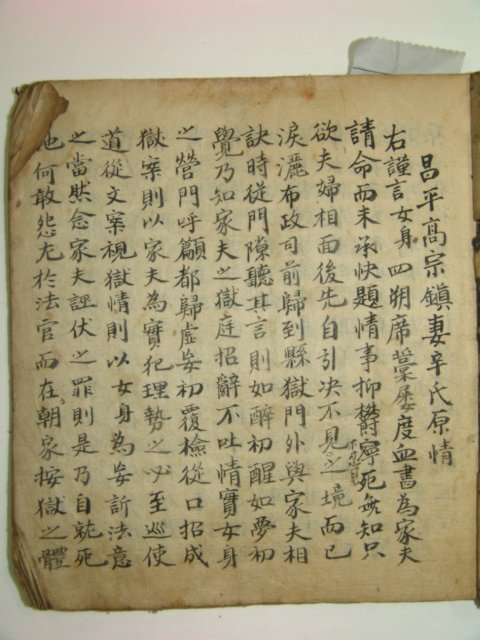 昌平高宗鎭妻辛氏原情
右謹言女身四朔席藁屢度血書為家夫
請命而未承快題情事抑欝寧死無知只
欲夫婦相面後先自引决不見之境而已
淚灑布政司前歸到縣獄門外與家夫相
訣時從門隙聽其言則如醉初醒如夢初
覺乃知家夫之獄庭招辭不吐情實女身
之營門呼籲都歸虛妄初覆檢從口招成
獄案則以家夫為實犯理勢之必至巡使
道從文案視獄情則以女身為妄訴法意
之當然念家夫誣伏之罪則是乃自就死
地何敢怨尤於法官而在朝家按獄之體